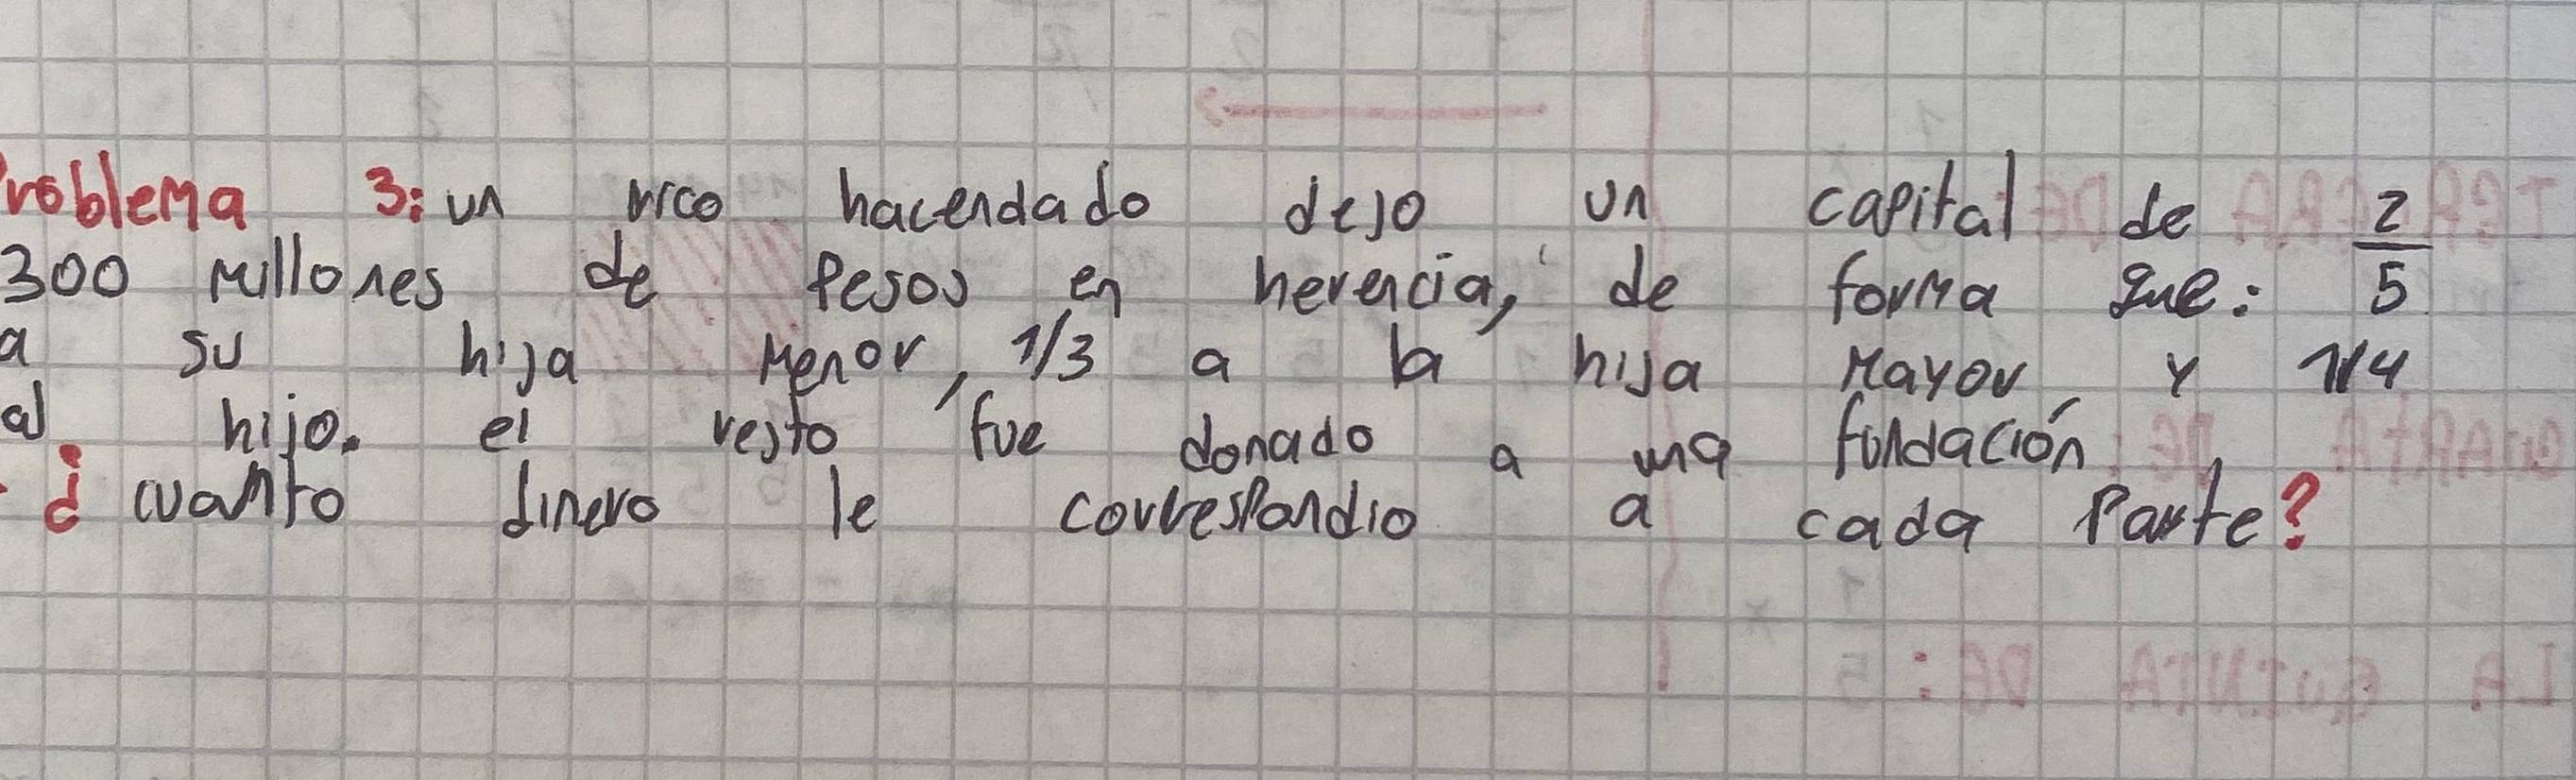 Problema 3: un rico hacendado dejo un capital de
300 millones de Pesos en herencia, de forma que: 2/5
a su hija menor, 1/3 a la hija mayor y 1/4
al hijo. el resto fue donado a una fundación
¿ cuanto dinero le correspondio a cada Parte?